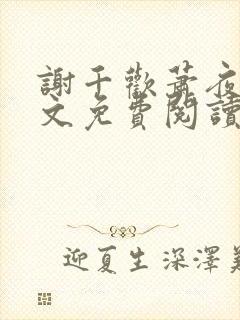 謝千歡蕭夜
文免費閱讀
迎夏生深澤